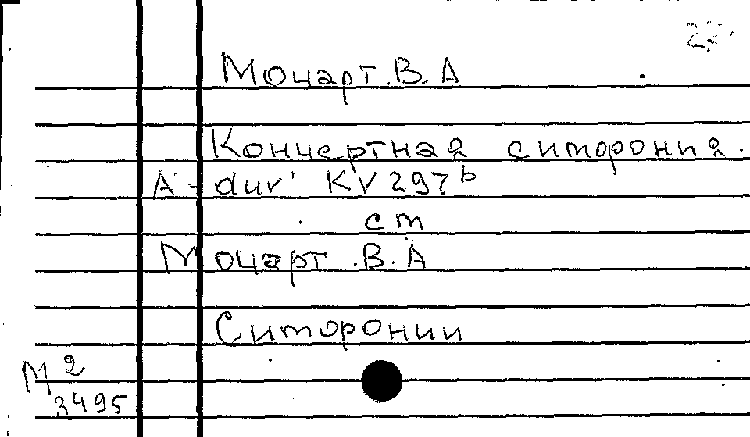 Моцарт.В.А
Концертная симфония.
A-dur' KV297b
см
Моцарт.В.А
Симфонии
М2
3495